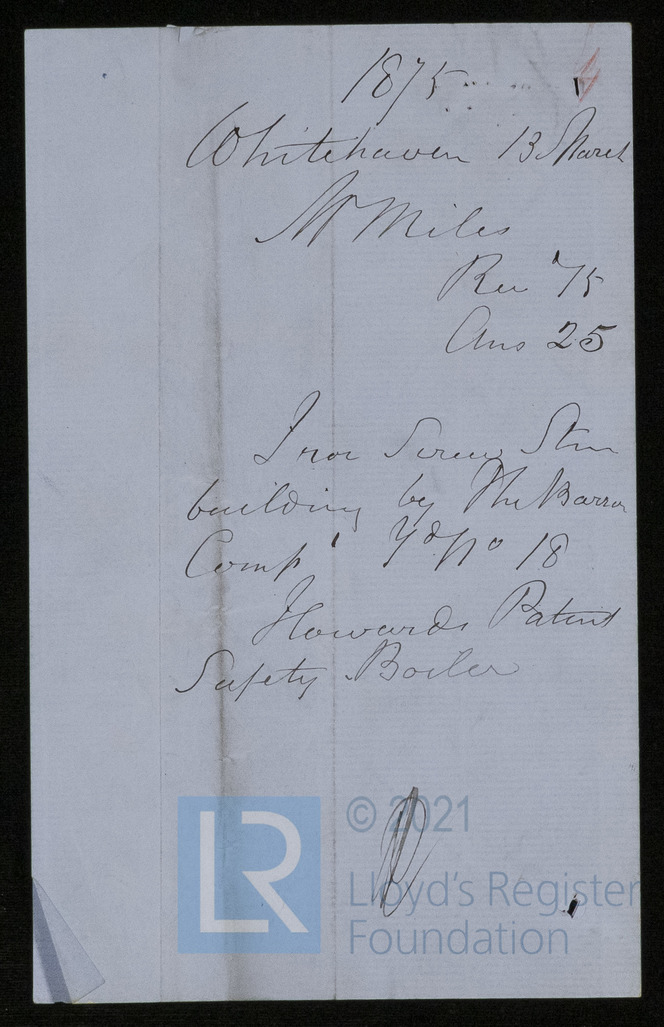 1875
Whitehaven 13 March
Mr Miles
Rec 15
Ans 25
Iron Screw Stm
building by The Barrow
Comp' Yd No 18
Howards Patent
Safety Boiler
LR
© 2021
Lloyd's Register
Foundation